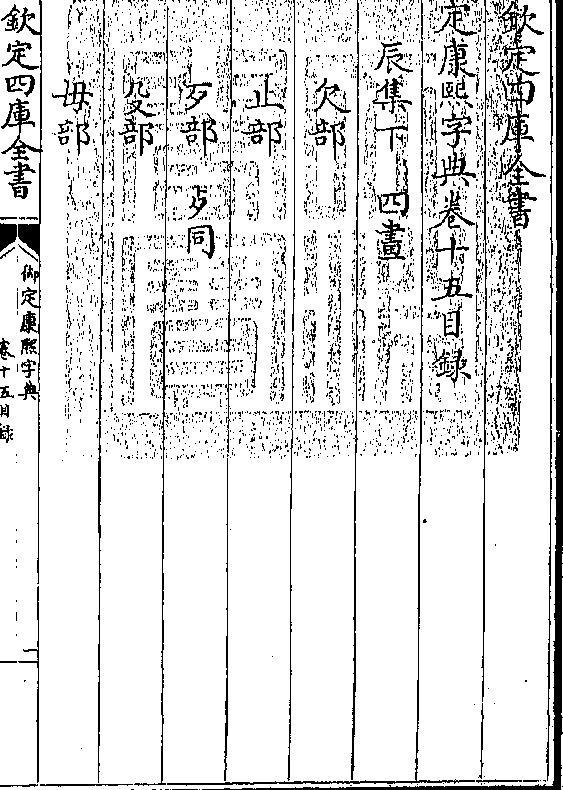 欽定四庫全書
定康熙字典卷十五目録
辰集下 四畫
欠部
止部
歹部 歺同
殳部
毋部
欽定四庫全書
御定康熙字典
卷十五目録
一